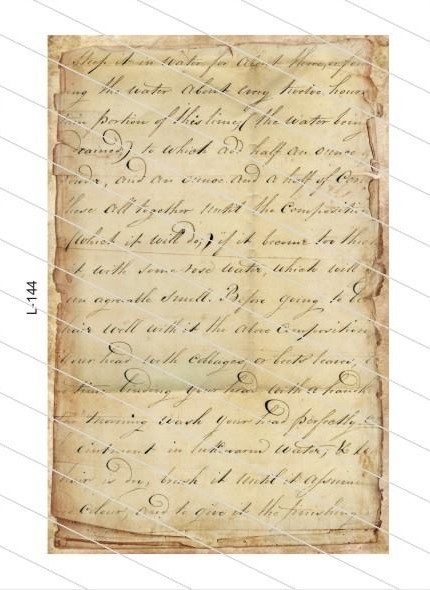 Steep it in water for about three, refres
ing the water about every twelve hours
tain portion of this lime, (the water bein
drained,) to which add half an ounce
and an ounce and a half of
these all together until the Compositio
(which it will do,) if it become too thic
it, with some rose water, which will
an agreeable smell. Before going to b
hair well with it the above composition
Your head with cabbages, or beets leaves, o
time binding your head with a handk
morning wash your head perfectly
ointment in lukewarm water, &
hair is dry, brush it until it assume
colour, and to give it the finishing
L-144